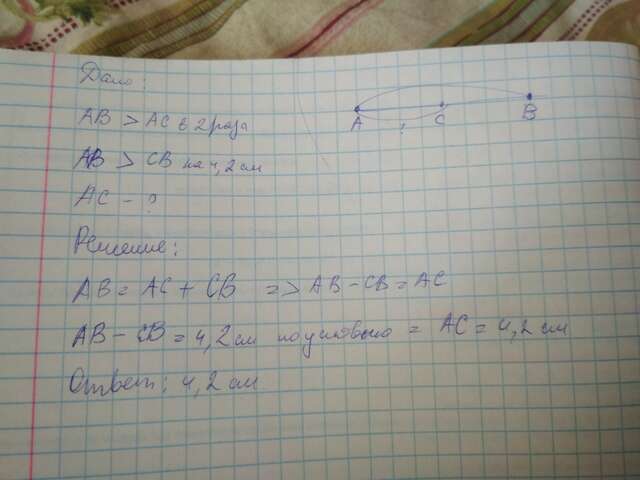 Дано:
A C B
AB > AC в 2 раза
AB > CB на 4,2 см
AC - ?
Решение:
AB = AC + CB => AB - CB = AC
AB - CB = 4,2 см по условию = AC = 4,2 см
Ответ: 4,2 см